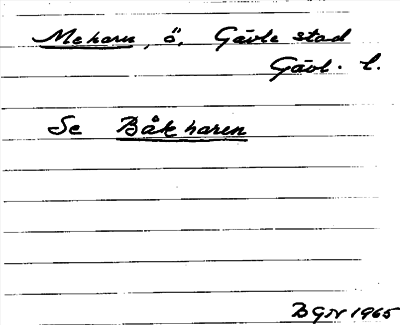 Meharn, ö. Gävle stad
Gävl. l.
Se Båkharen
BGN 1965